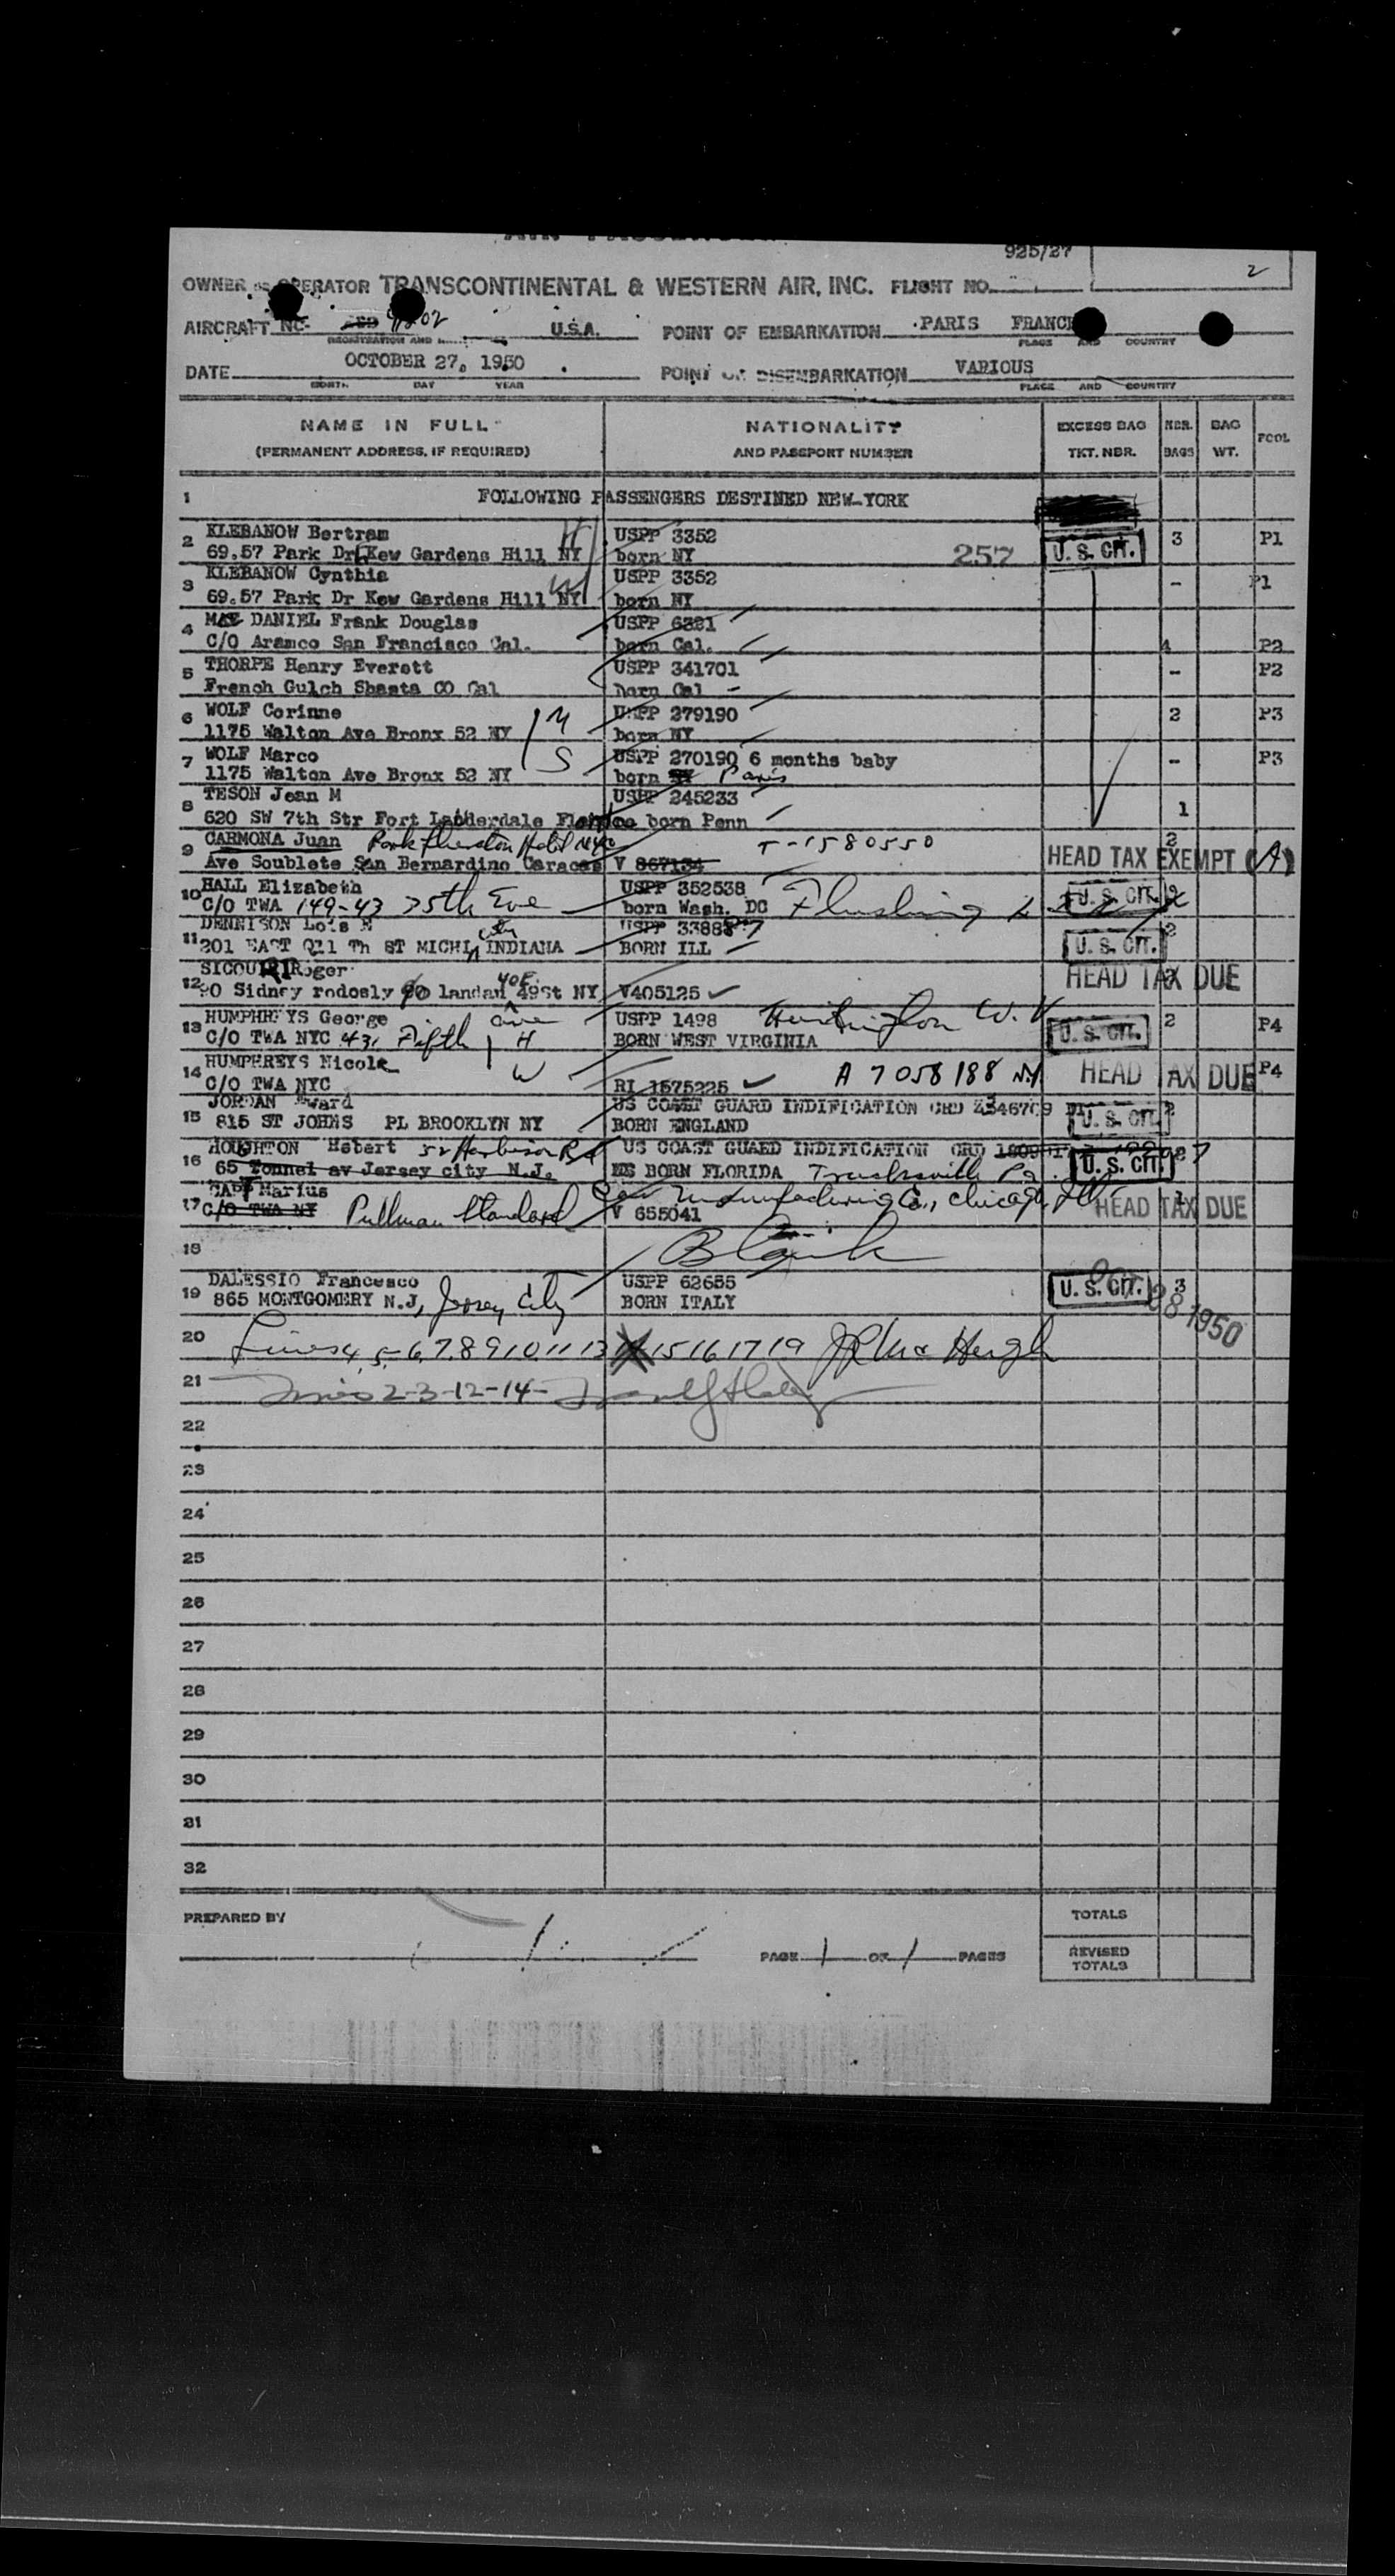 925/27
2
OWNER OR OPERATOR TRANSCONTINENTAL & WESTERN AIR, INC. FLIGHT NO.
AIRCRAFT NC- U.S.A. POINT OF EMBARKATION PARIS FRANCE
PLACE AND COUNTRY
DATE OCTOBER 27, 1950 POINT OF DISEMBARKATION VARIOUS
MONTH DAY YEAR PLACE AND COUNTRY
NAME IN FULL NATIONALITY EXCESS BAG NBR. BAG FCOL
(PERMANENT ADDRESS, IF REQUIRED) AND PASSPORT NUMBER TKT. NBR. BAGS WT.
1 FOLLOWING PASSENGERS DESTINED NEW-YORK
2 KLEBANOW Bertram H USPP 3352 257 U. S. CIT. 3 P1
69.57 Park Dr Kew Gardens Hill NY born NY
3 KLEBANOW Cynthia W USPP 3352 - P1
69.57 Park Dr Kew Gardens Hill NY born NY
4 Mac DANIEL Frank Douglas USPP 6381
C/O Aramco San Francisco Cal. born Cal. 4 P2
5 THORPE Henry Everett USPP 341701 - P2
French Gulch Shasta CO Cal born Cal
6 WOLF Corinne M USPP 279190 2 P3
1175 Walton Ave Bronx 52 NY born NY
7 WOLF Marco S USPP 270190 6 months baby - P3
1175 Walton Ave Bronx 52 NY born NY Paris
8 TESON Jean M USPP 245233 1
620 SW 7th Str Fort Lauderdale born Penn
9 CARMONA Juan Hotel T-1580550 2
Ave Soublete San Bernardino Caracas V 867134 HEAD TAX EXEMPT (A)
10 HALL Elizabeth USPP 352538 Flushing U. S. CIT. 2
C/O TWA 149-43 75th Ave born Wash. DC
11 DENNISON Lois E USPP 2
201 EAST 11 Th ST MICHI INDIANA BORN ILL U. S. CIT.
12 SICOURI Roger HEAD TAX DUE 2
90 Sidney rodosly landau 40E. 49St NY V405125
13 HUMPHREYS George ave USPP 1498 Huntington W.V 2 P4
C/O TWA NYC 431 Fifth H BORN WEST VIRGINIA U. S. CIT.
14 HUMPHREYS Nicole W A 7058188 NY HEAD TAX DUE P4
C/O TWA NYC RI 1575225
15 JORDAN Edward US COAST GUARD INDIFICATION CRD U. S. CIT. 2
815 ST JOHNS PL BROOKLYN NY BORN ENGLAND
16 HOUGHTON Hebert 52 Harbison Rd US COAST GUARD INDIFICATION CRD
65 Tonnel av Jersey city N.J. BORN FLORIDA Trucksville Pa. U. S. CIT.
17 Marius Car Manufacturing Co., Chicago, Ill 1
C/O TWA NY Pullman Standard V 655041 HEAD TAX DUE
18 Blank
19 DALESSIO Francesco USPP 62655 U. S. CIT. 3
865 MONTGOMERY N.J, Jersey City BORN ITALY
OCT 28 1950
20 Lines 4, 5-6, 7, 8 9 10 11 13 15 16 17 19
21 Lines 2-3-12-14-
22
23
24
25
26
27
28
29
30
31
32
PREPARED BY TOTALS
PAGE 1 OF 1 PAGES REVISED
TOTALS